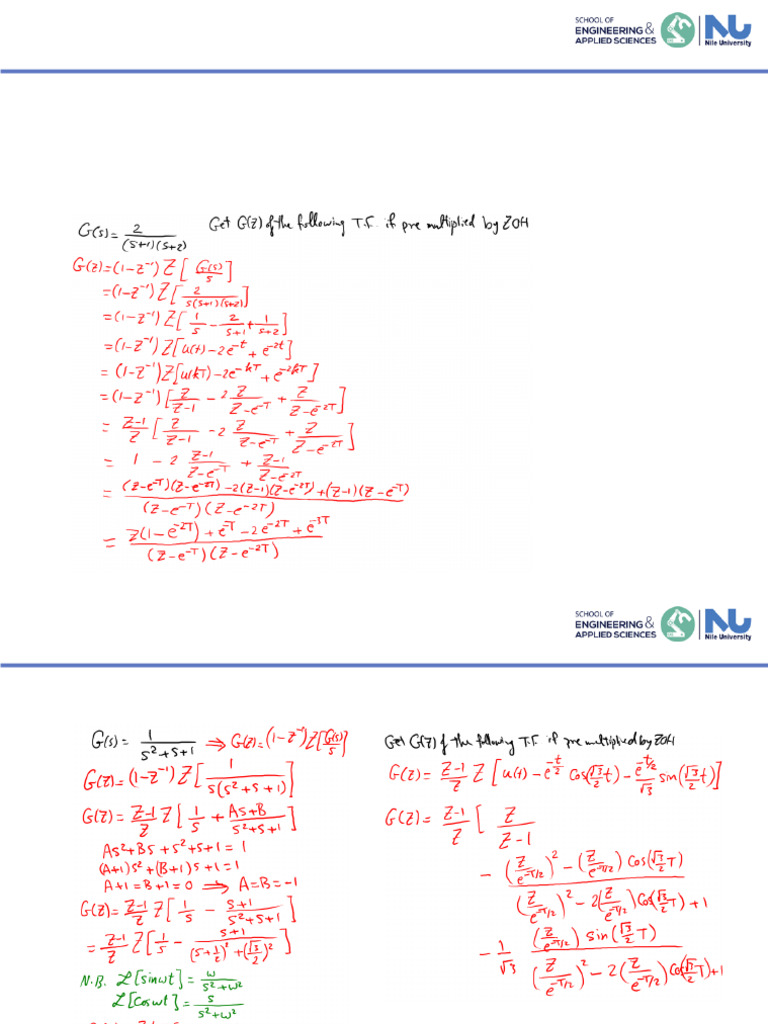 SCHOOL OF
ENGINEERING &
APPLIED SCIENCES
NU
Nile University
G(s) = 2/((s+1)(s+2)) Get G(Z) of the following T.F. if pre multiplied by ZOH
G(Z) = (1-Z⁻¹) Z[G(s)/s]
= (1-Z⁻¹) Z[2/(s(s+1)(s+2))]
= (1-Z⁻¹) Z[1/s - 2/(s+1) + 1/(s+2)]
= (1-Z⁻¹) Z[u(t) - 2e^-t + e^-2t]
= (1-Z⁻¹) Z[u(kT) - 2e^-kT + e^-2kT]
= (1-Z⁻¹) [Z/(Z-1) - 2 Z/(Z-e^-T) + Z/(Z-e^-2T)]
= (Z-1)/Z [Z/(Z-1) - 2 Z/(Z-e^-T) + Z/(Z-e^-2T)]
= 1 - 2 (Z-1)/(Z-e^-T) + (Z-1)/(Z-e^-2T)
= ((Z-e^-T)(Z-e^-2T) - 2(Z-1)(Z-e^-2T) + (Z-1)(Z-e^-T))/((Z-e^-T)(Z-e^-2T))
= (Z(1-e^-2T) + e^-T - 2e^-2T + e^-3T)/((Z-e^-T)(Z-e^-2T))
SCHOOL OF
ENGINEERING &
APPLIED SCIENCES
NU
Nile University
G(s) = 1/(s²+s+1) ⇒ G(Z) = (1-Z⁻¹) Z[G(s)/s]
G(Z) = (1-Z⁻¹) Z[1/(s(s²+s+1))]
G(Z) = (Z-1)/Z Z[1/s + (As+B)/(s²+s+1)]
As²+Bs+s²+s+1 = 1
(A+1)s²+(B+1)s+1 = 1
A+1 = B+1 = 0 ⇒ A=B=-1
G(Z) = (Z-1)/Z Z[1/s - (s+1)/(s²+s+1)]
= (Z-1)/Z Z[1/s - (s+1)/((s+½)²+(√3/2)²)]
N.B. L[sinwt] = w/(s²+w²)
L[coswt] = s/(s²+w²)
Get G(Z) of the following T.F. if pre multiplied by ZOH
G(Z) = (Z-1)/Z Z[u(t) - e^-t/2 cos(√3/2 t) - e^-t/2/√3 sin(√3/2 t)]
G(Z) = (Z-1)/Z [Z/(Z-1)
- ((Z/e^-T/2)² - (Z/e^-T/2) cos(√3/2 T))/((Z/e^-T/2)² - 2(Z/e^-T/2) cos(√3/2 T) + 1)
- 1/√3 ((Z/e^-T/2) sin(√3/2 T))/((Z/e^-T/2)² - 2(Z/e^-T/2) cos(√3/2 T) + 1)